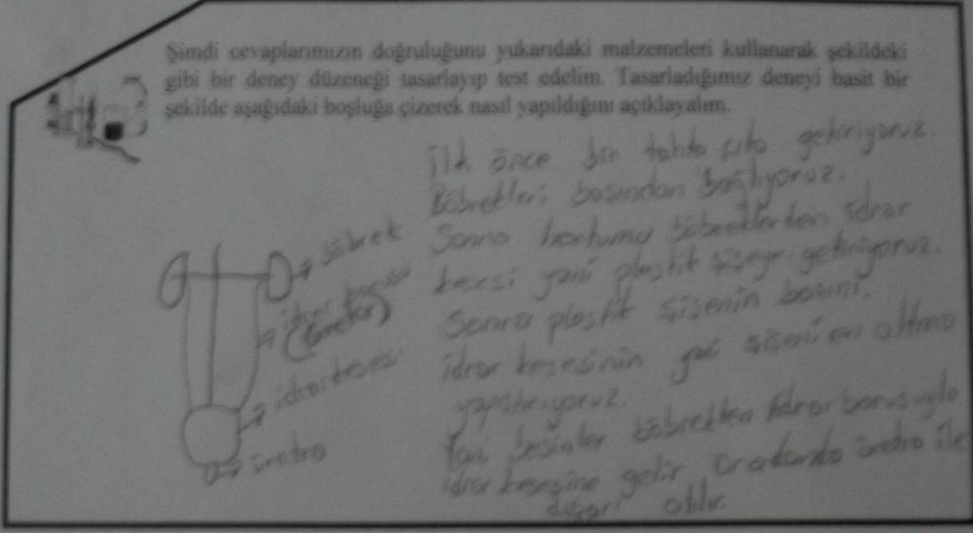 Şimdi cevaplarımızın doğruluğunu yukarıdaki malzemeleri kullanarak şekildeki
gibi bir deney düzeneği tasarlayıp test edelim. Tasarladığımız deneyi basit bir
şekilde aşağıdaki boşluğa çizerek nasıl yapıldığını açıklayalım.
ilk önce bir tahta çıta getiriyoruz.
Böbrekleri basından bağlıyoruz.
Sonra hortumu böbreklerden idrar
kesesi yani plastik şişeye getiriyoruz.
Sonra plastik şişenin basını.
idrar kesesinin yani şişeni en altına
yapıştırıyoruz.
Yani besinler böbrekten idrar borusuyla
idrar kesesine gelir oradanda üretra ile
dışarı atılır.
böbrek
idrar borusu
(üreter)
idrar kesesi
üretra